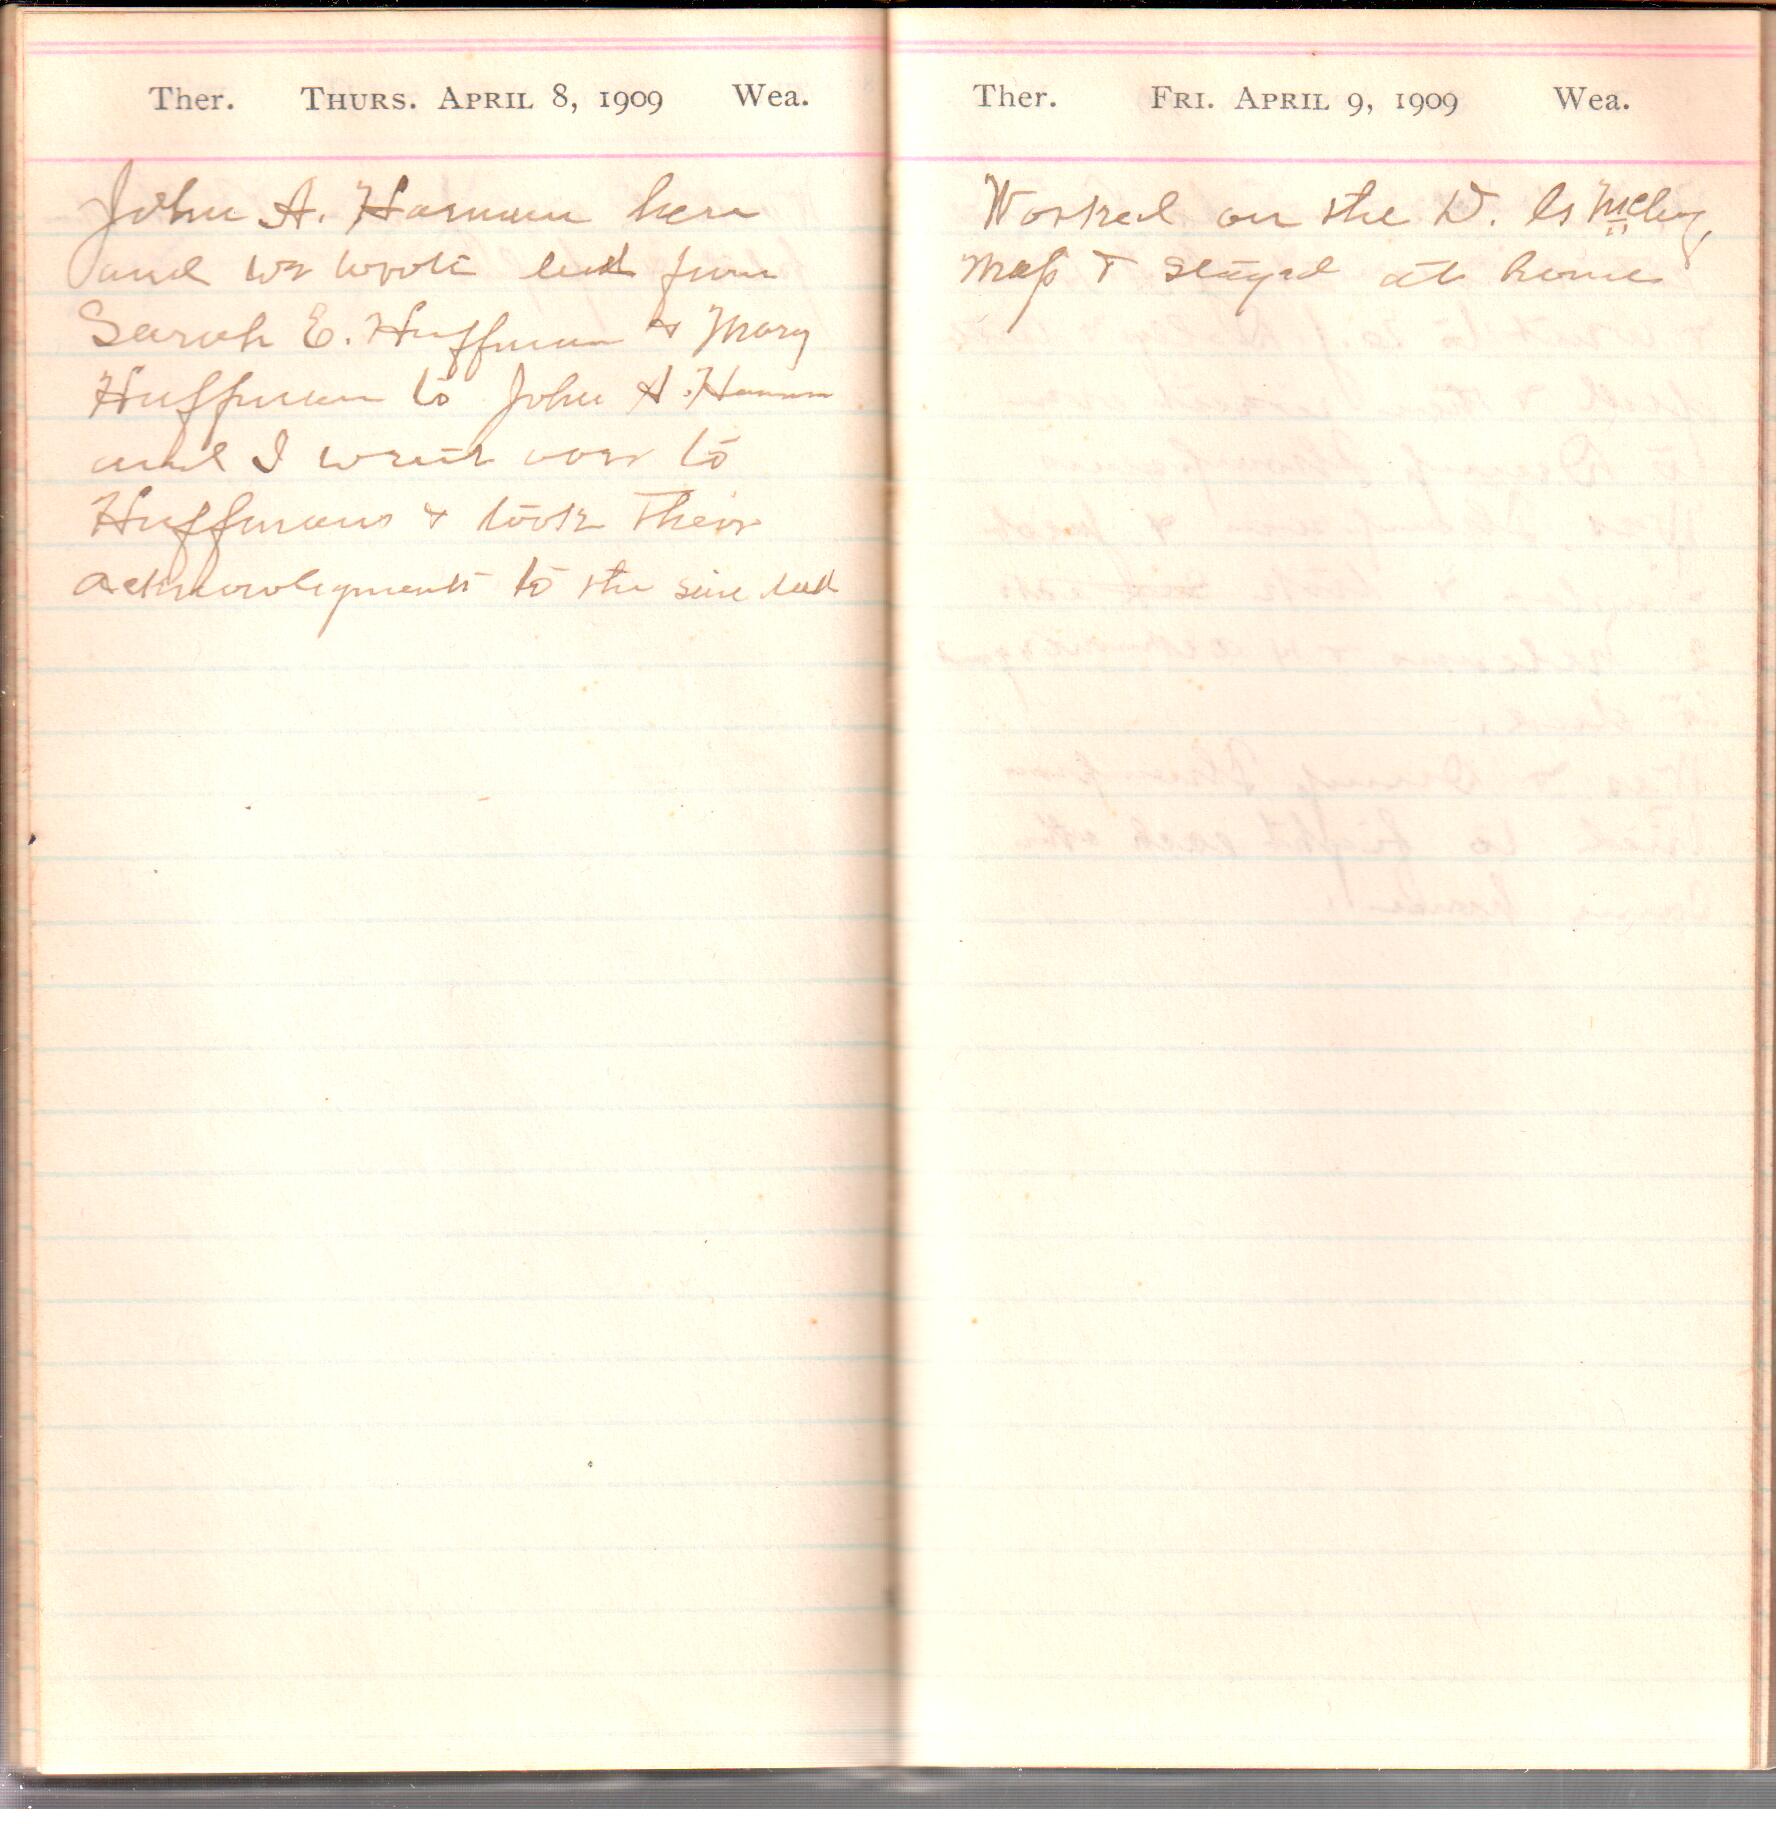 Ther. THURS. APRIL 8, 1909 Wea.
John A. Harman here
and we wrote deed from
Sarah E. Huffman & Mary
Huffman to John A. Harman
and I went over to
Huffmans & took Their
acknowlegments to the deed
Ther. FRI. APRIL 9, 1909 Wea.
Worked on the D.
Map & stayed at home